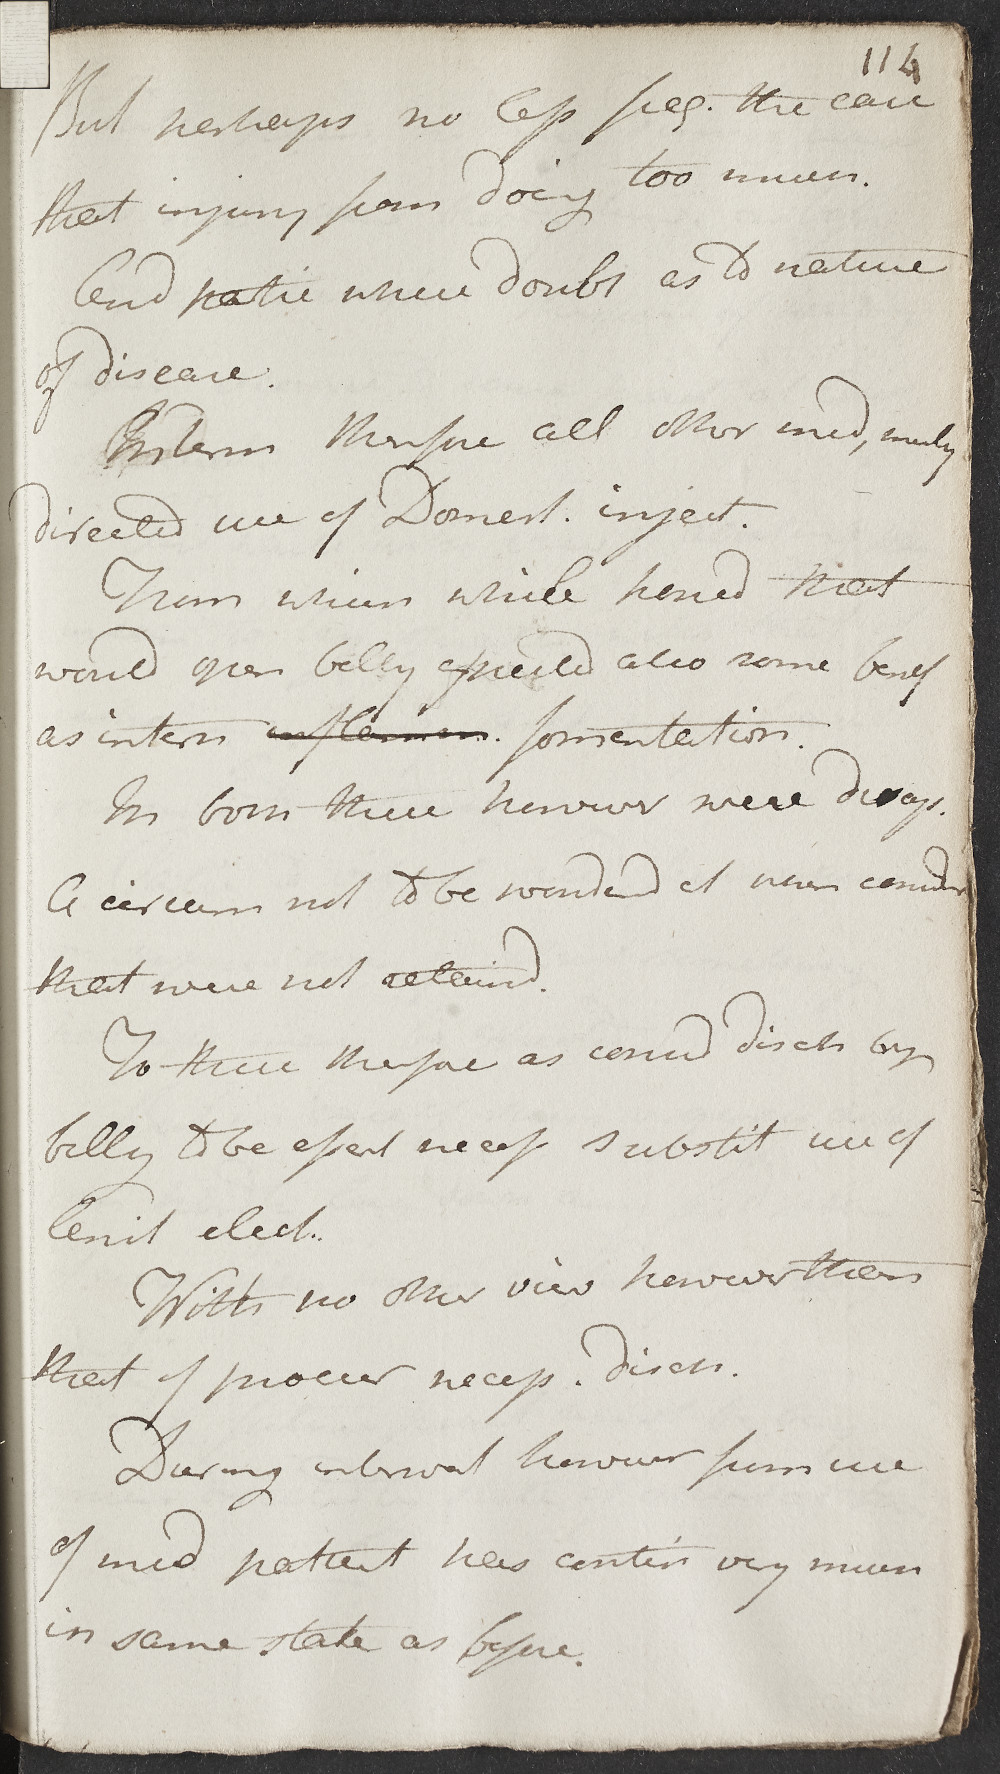 114
But perhaps no less freq. the case
that injury from doing too much.
And partic where doubt as to nature
of disease.
Interm therefore all other med, merely
directed use of Domest. inject.
From which while hoped that
would open belly expected also some benef
as intern inflammn. fomentation.
In both these however were disap.
A circum not to be wonderd at when consider
that were not retaind.
To these therefore as consid disch by
belly to be of great necess substit use of
lenit elect.
With no other view however than
that of procur necess. disch.
During interval however from use
of med patient has contin very much
in same state as before.